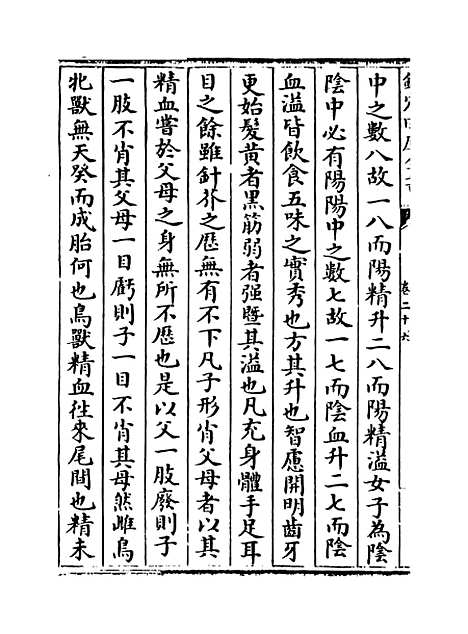 卷二十六
中之數八故一八而陽精升二八而陽精溢女子為陰
陰中必有陽陽中之數七故一七而陰血升二七而陰
血溢皆飲食五味之實秀也方其升也智慮開明齒牙
更始髮黃者黑筋弱者强暨其溢也凡充身體手足耳
目之餘雖針芥之歴無有不下凡子形肖父母者以其
精血嘗於父母之身無所不歴也是以父一肢廢則子
一肢不肖其父母一目虧則子一目不肖其母然雌鳥
牝獸無天癸而成胎何也鳥獸精血徃來尾間也精未